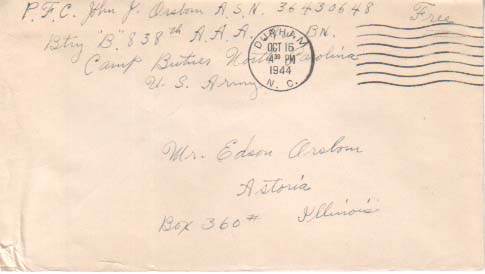 P.F.C. John J. Orsbom A.S.N. 36430648
Free
Btry "B". 838th A.A.A. BN.
Camp Butner North Carolina
U.S. Army
DURHAM
OCT 16
PM
1944
N.C.
Mr. Edson Orsbom
Astoria
Box 360# Illinois